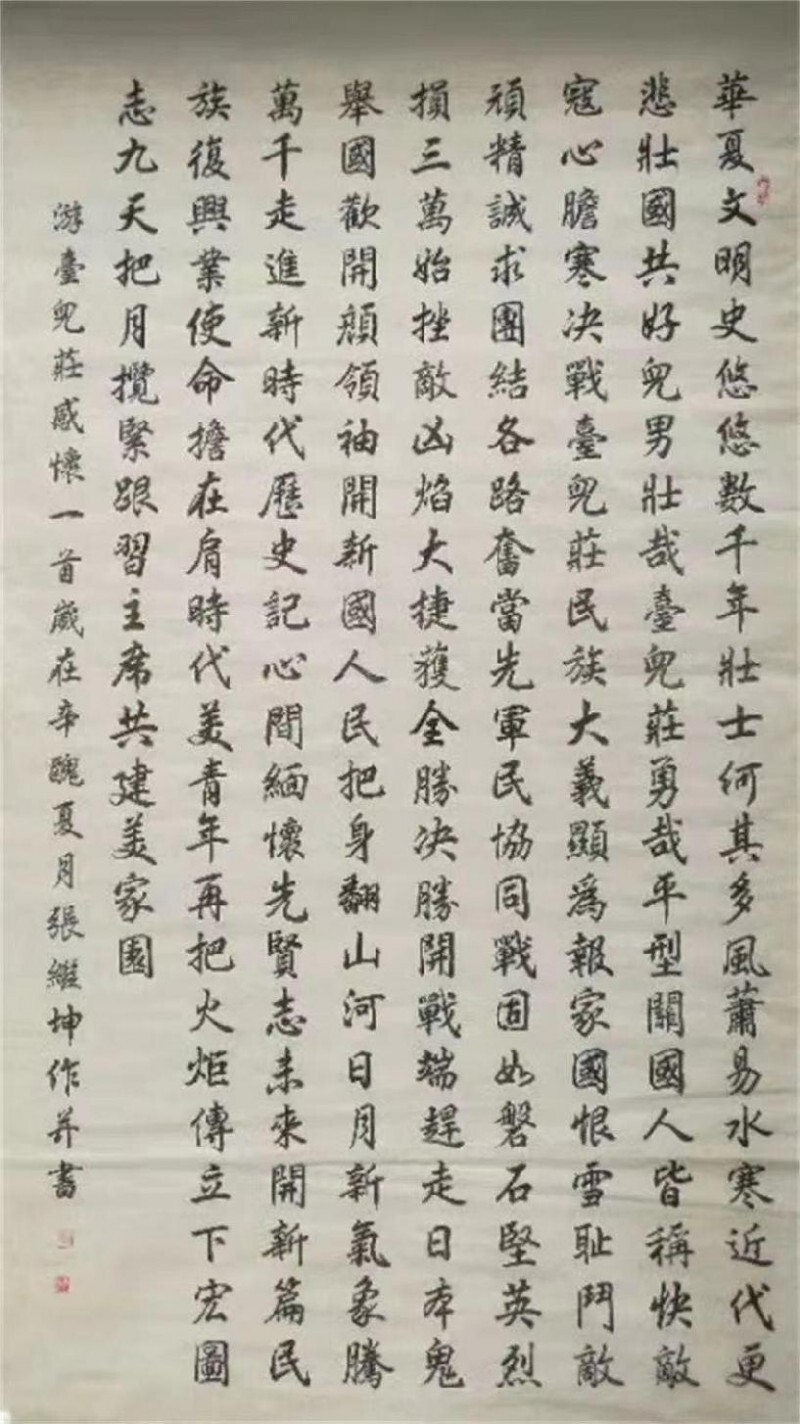 華夏文明史悠悠數千年壯士何其多風蕭易水寒近代更
悲壯國共好兒男壯哉臺兒莊勇哉平型關國人皆稱快敵
寇心膽寒決戰臺兒莊民族大義顯爲報家國恨雪耻鬥敵
頑精誠求團結各路奮當先軍民協同戰固如磐石堅英烈
損三萬始挫敵凶焰大捷獲全勝决勝開戰端趕走日本鬼
舉國歡開顏領袖開新國人民把身翻山河日月新氣象騰
萬千走進新時代歷史記心間緬懷先賢志未來開新篇民
族復興業使命擔在肩時代美青年再把火炬傳立下宏圖
志九天把月攬緊跟習主席共建美家園
游臺兒莊感懷一首歲在辛醜夏月張繼坤作并書